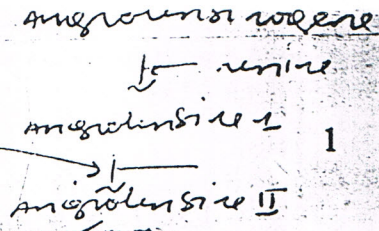 angiotensinogene
renine
angiotensine 1
1
angiotensine II